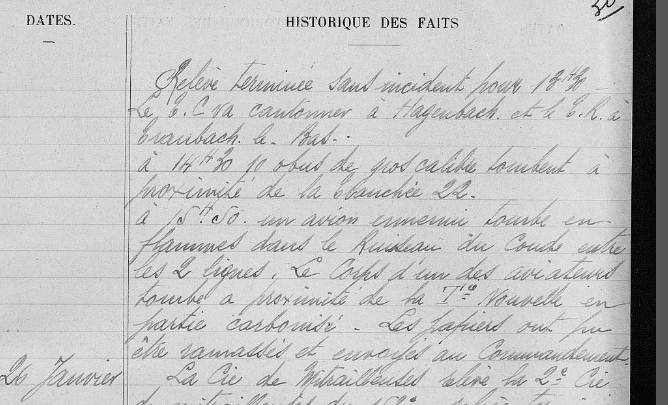 30
DATES.
HISTORIQUE DES FAITS
Relève terminée sans incident pour 18H30
Le T.C va cantonner à Hagenbach et le T.R. à
Traubach le Bas.
à 14H30 10 obus de gros calibre tombent à
proximité de la tranchée 22.
à 15H50 un avion ennemi tombe en
flammes dans le Ruisseau du Coude entre
les 2 lignes. Le Corps d'un des aviateurs
tombe a proximité de la Tie Nouvelle en
partie carbonisé - Les papiers ont pu
être ramassés et envoyés au Commandement.
26 Janvier
La Cie de Mitrailleuses relève la 2e Cie
de mitrailleuses du